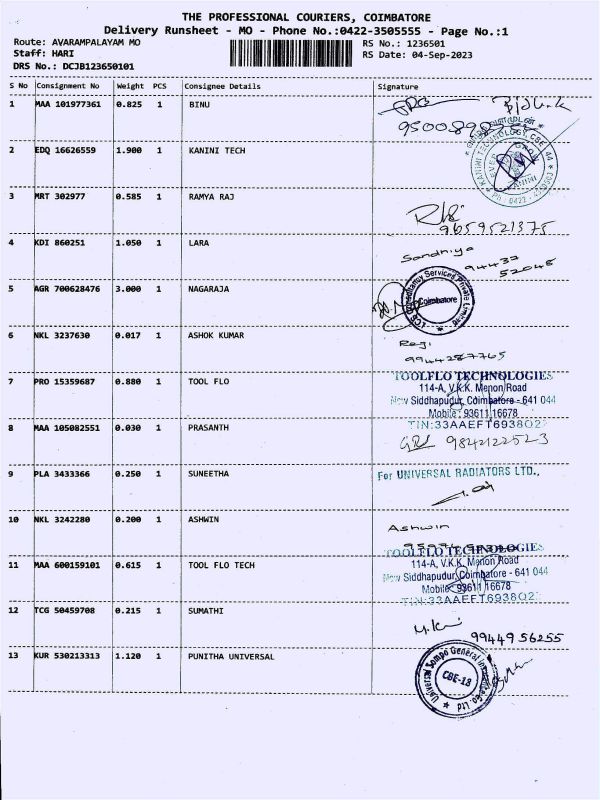 THE PROFESSIONAL COURIERS, COIMBATORE
Delivery Runsheet - MO - Phone No.:0422-3505555 - Page No.:1
Route: AVARAMPALAYAM MO
Staff: HARI
DRS No.: DCJB123650101
RS No.: 1236501
RS Date: 04-Sep-2023
S No Consignment No Weight PCS Consignee Details Signature
1 MAA 101977361 0.825 1 BINU
2 EDQ 16626559 1.900 1 KANINI TECH
KANINI TECHNOLOGY CBE 44
KANINI
3 MRT 302977 0.585 1 RAMYA RAJ
9659521375
4 KDI 860251 1.050 1 LARA
Sandhiya
94432
52048
5 AGR 700628476 3.000 1 NAGARAJA
Consultancy Services Private Limited
Coimbatore
6 NKL 3237630 0.017 1 ASHOK KUMAR
Regi
9944287765
7 PRO 15359687 0.880 1 TOOL FLO
TOOLFLO TECHNOLOGIES
114-A, V.K.K. Menon Road
New Siddhapudur, Coimbatore - 641 044
Mobile: 93611 16678
TIN:33AAEFT6938Q2
8 MAA 105082551 0.030 1 PRASANTH
9842122523
9 PLA 3433366 0.250 1 SUNEETHA
For UNIVERSAL RADIATORS LTD.,
10 NKL 3242280 0.200 1 ASHWIN
Ashwin
11 MAA 600159101 0.615 1 TOOL FLO TECH
TOOLFLO TECHNOLOGIES
114-A, V.K.K. Menon Road
New Siddhapudur, Coimbatore - 641 044
Mobile: 93611 16678
TIN:33AAEFT6938Q2
12 TCG 50459708 0.215 1 SUMATHI
9944956255
13 KUR 530213313 1.120 1 PUNITHA UNIVERSAL
Universal Sompo General Insurance Co. Ltd.
CBE-18